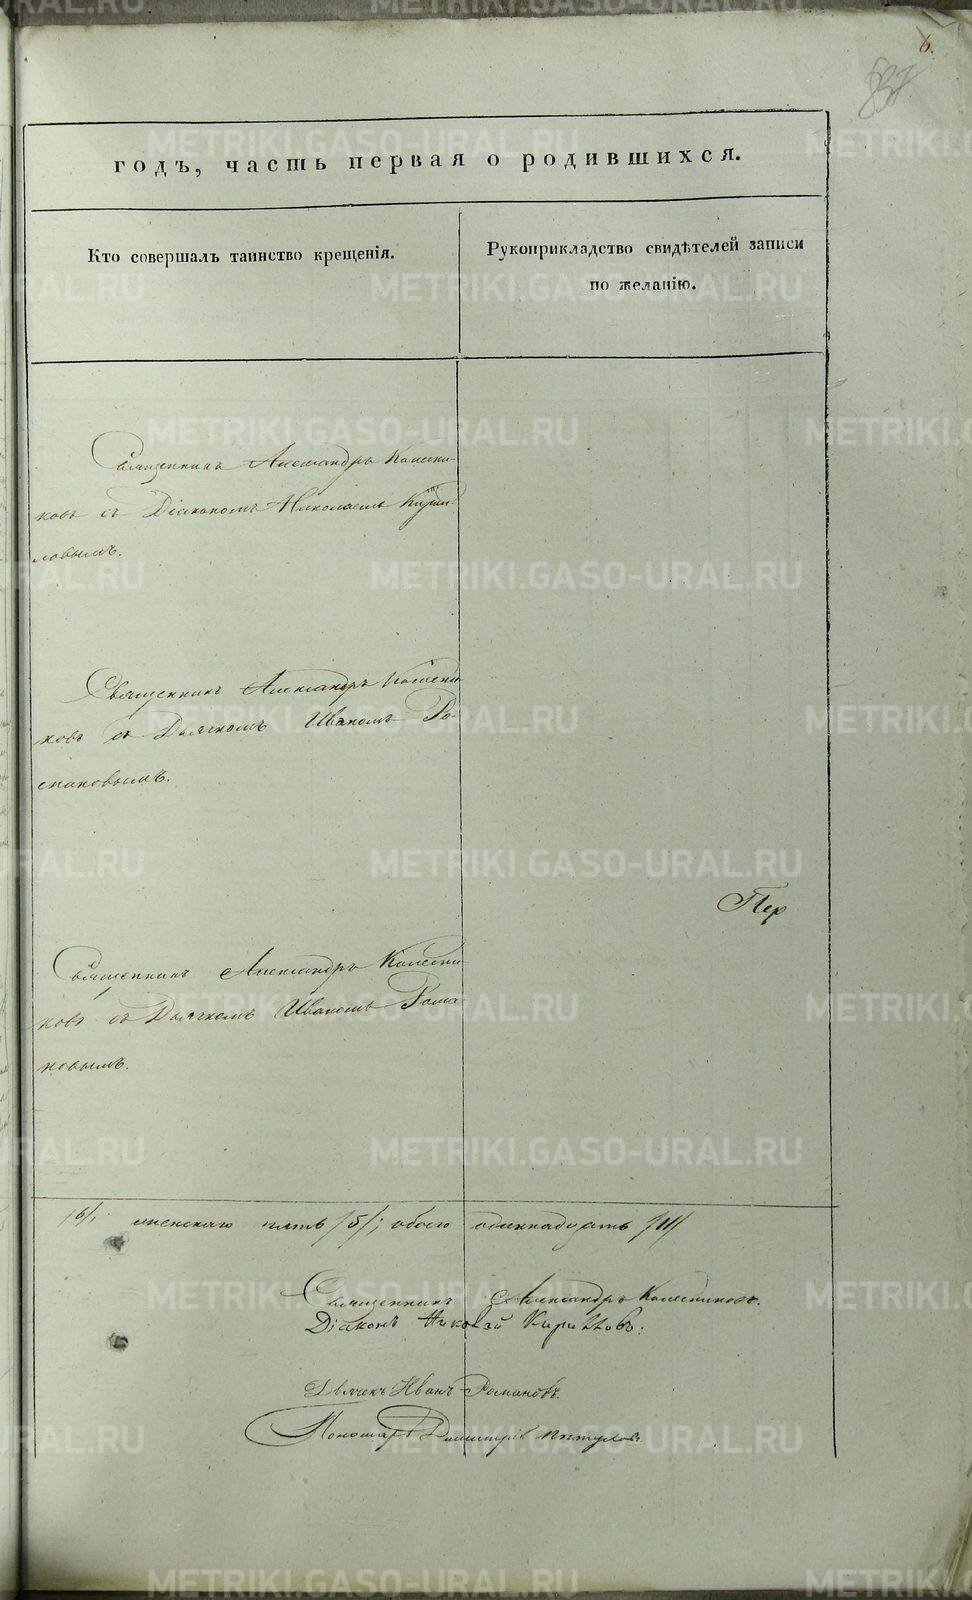 6.
837
годъ, часть первая о родившихся.
Кто совершалъ таинство крещенія.
Рукоприкладство свидѣтелей записи
по желанію.
Священникъ Александръ Колесни-
ковъ съ Діакономъ Николаемъ Кирил-
ловымъ.
Священникъ Александръ Колесни
ковъ съ Дьячкомъ Иваномъ Ро-
мановымъ.
Пер
Священникъ Александръ Колесни
ковъ съ Дьячкомъ Иваномъ Рома
новымъ.
/6/; женскаго пять /5/; обоего одиннадцать /11/
Священникъ Александръ Колесниковъ.
Діаконъ Николай Кирилловъ.
Дьячекъ Иванъ Романовъ.
Пономарь Димитрій Пѣтуховъ.
METRIKI.GASO-URAL.RU